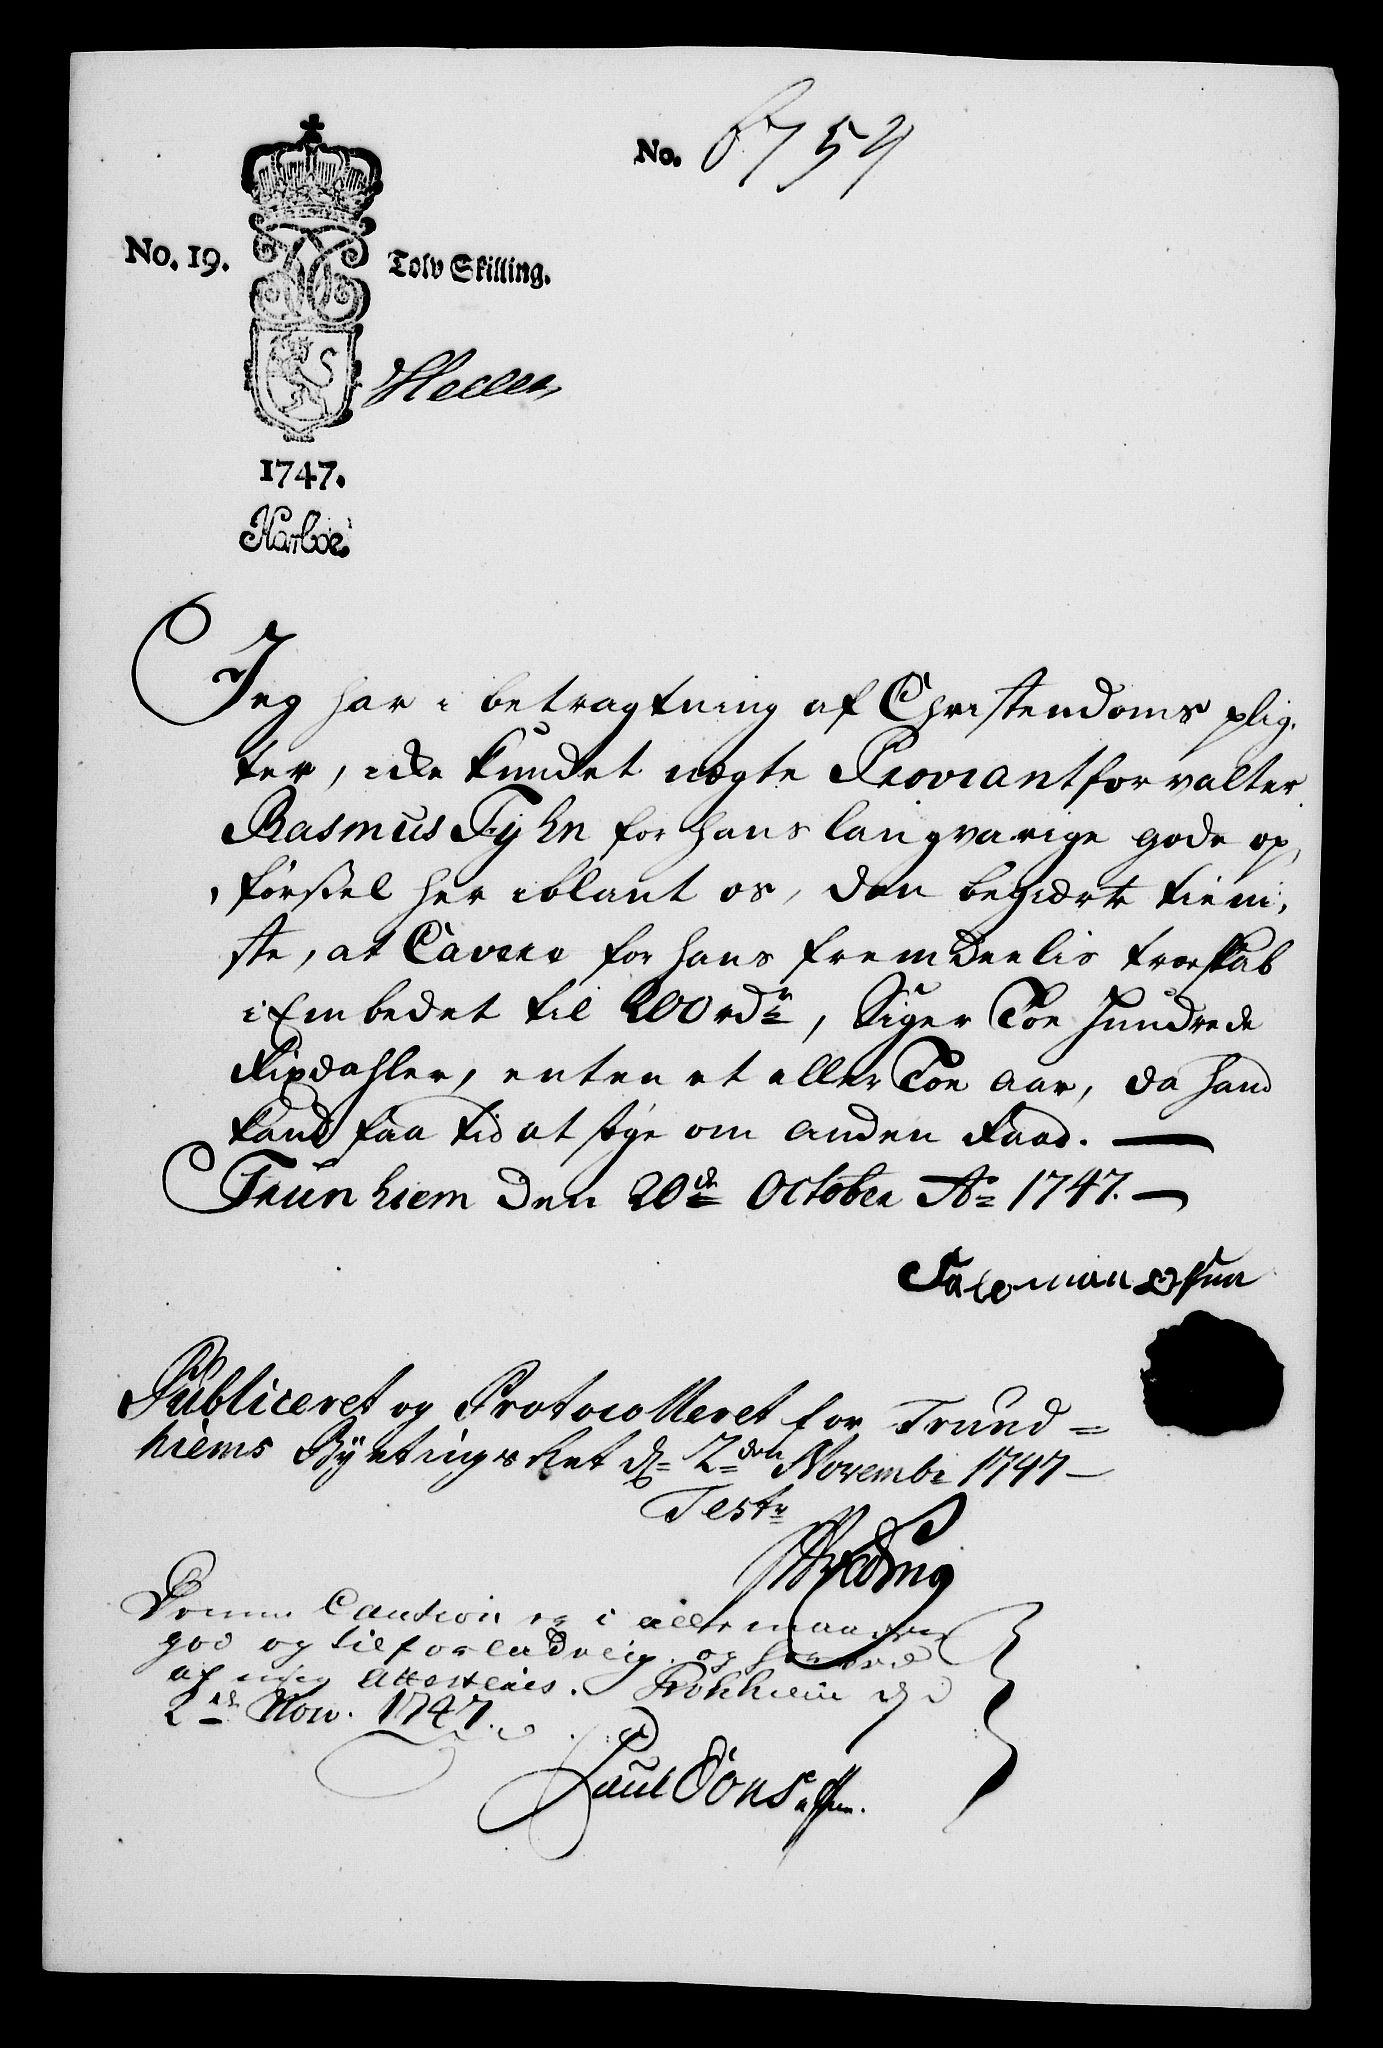 No. 6754
No. 19. Tolv Skilling.
1747.
Harboe.
Jeg har i betragtning af Christendoms plig-
ter, icke kundet nægte Proviantforvalter
Rasmus Tyhn for hans langvarige gode op-
førssel her iblant os, den begierte tieni-
ste, at Cavere for hans fremdeelis troeskab
i Embedet til 200 rdr, Siger Toe hundrede
Rixdahler, enten et eller Toe aar, da hand
kand faa tid at søge om anden Raad.
Trunhiem den 20de October Ao 1747.
Publiceret og Protocolleret for Trund-
hiems Byetings Ret d: 2den Novembr 1747
Test:
Denne Caution er i alle maader
god og tilforladelig, og
af mig Attesteris. Trohhiem d:
2de Nov. 1747.
Paul